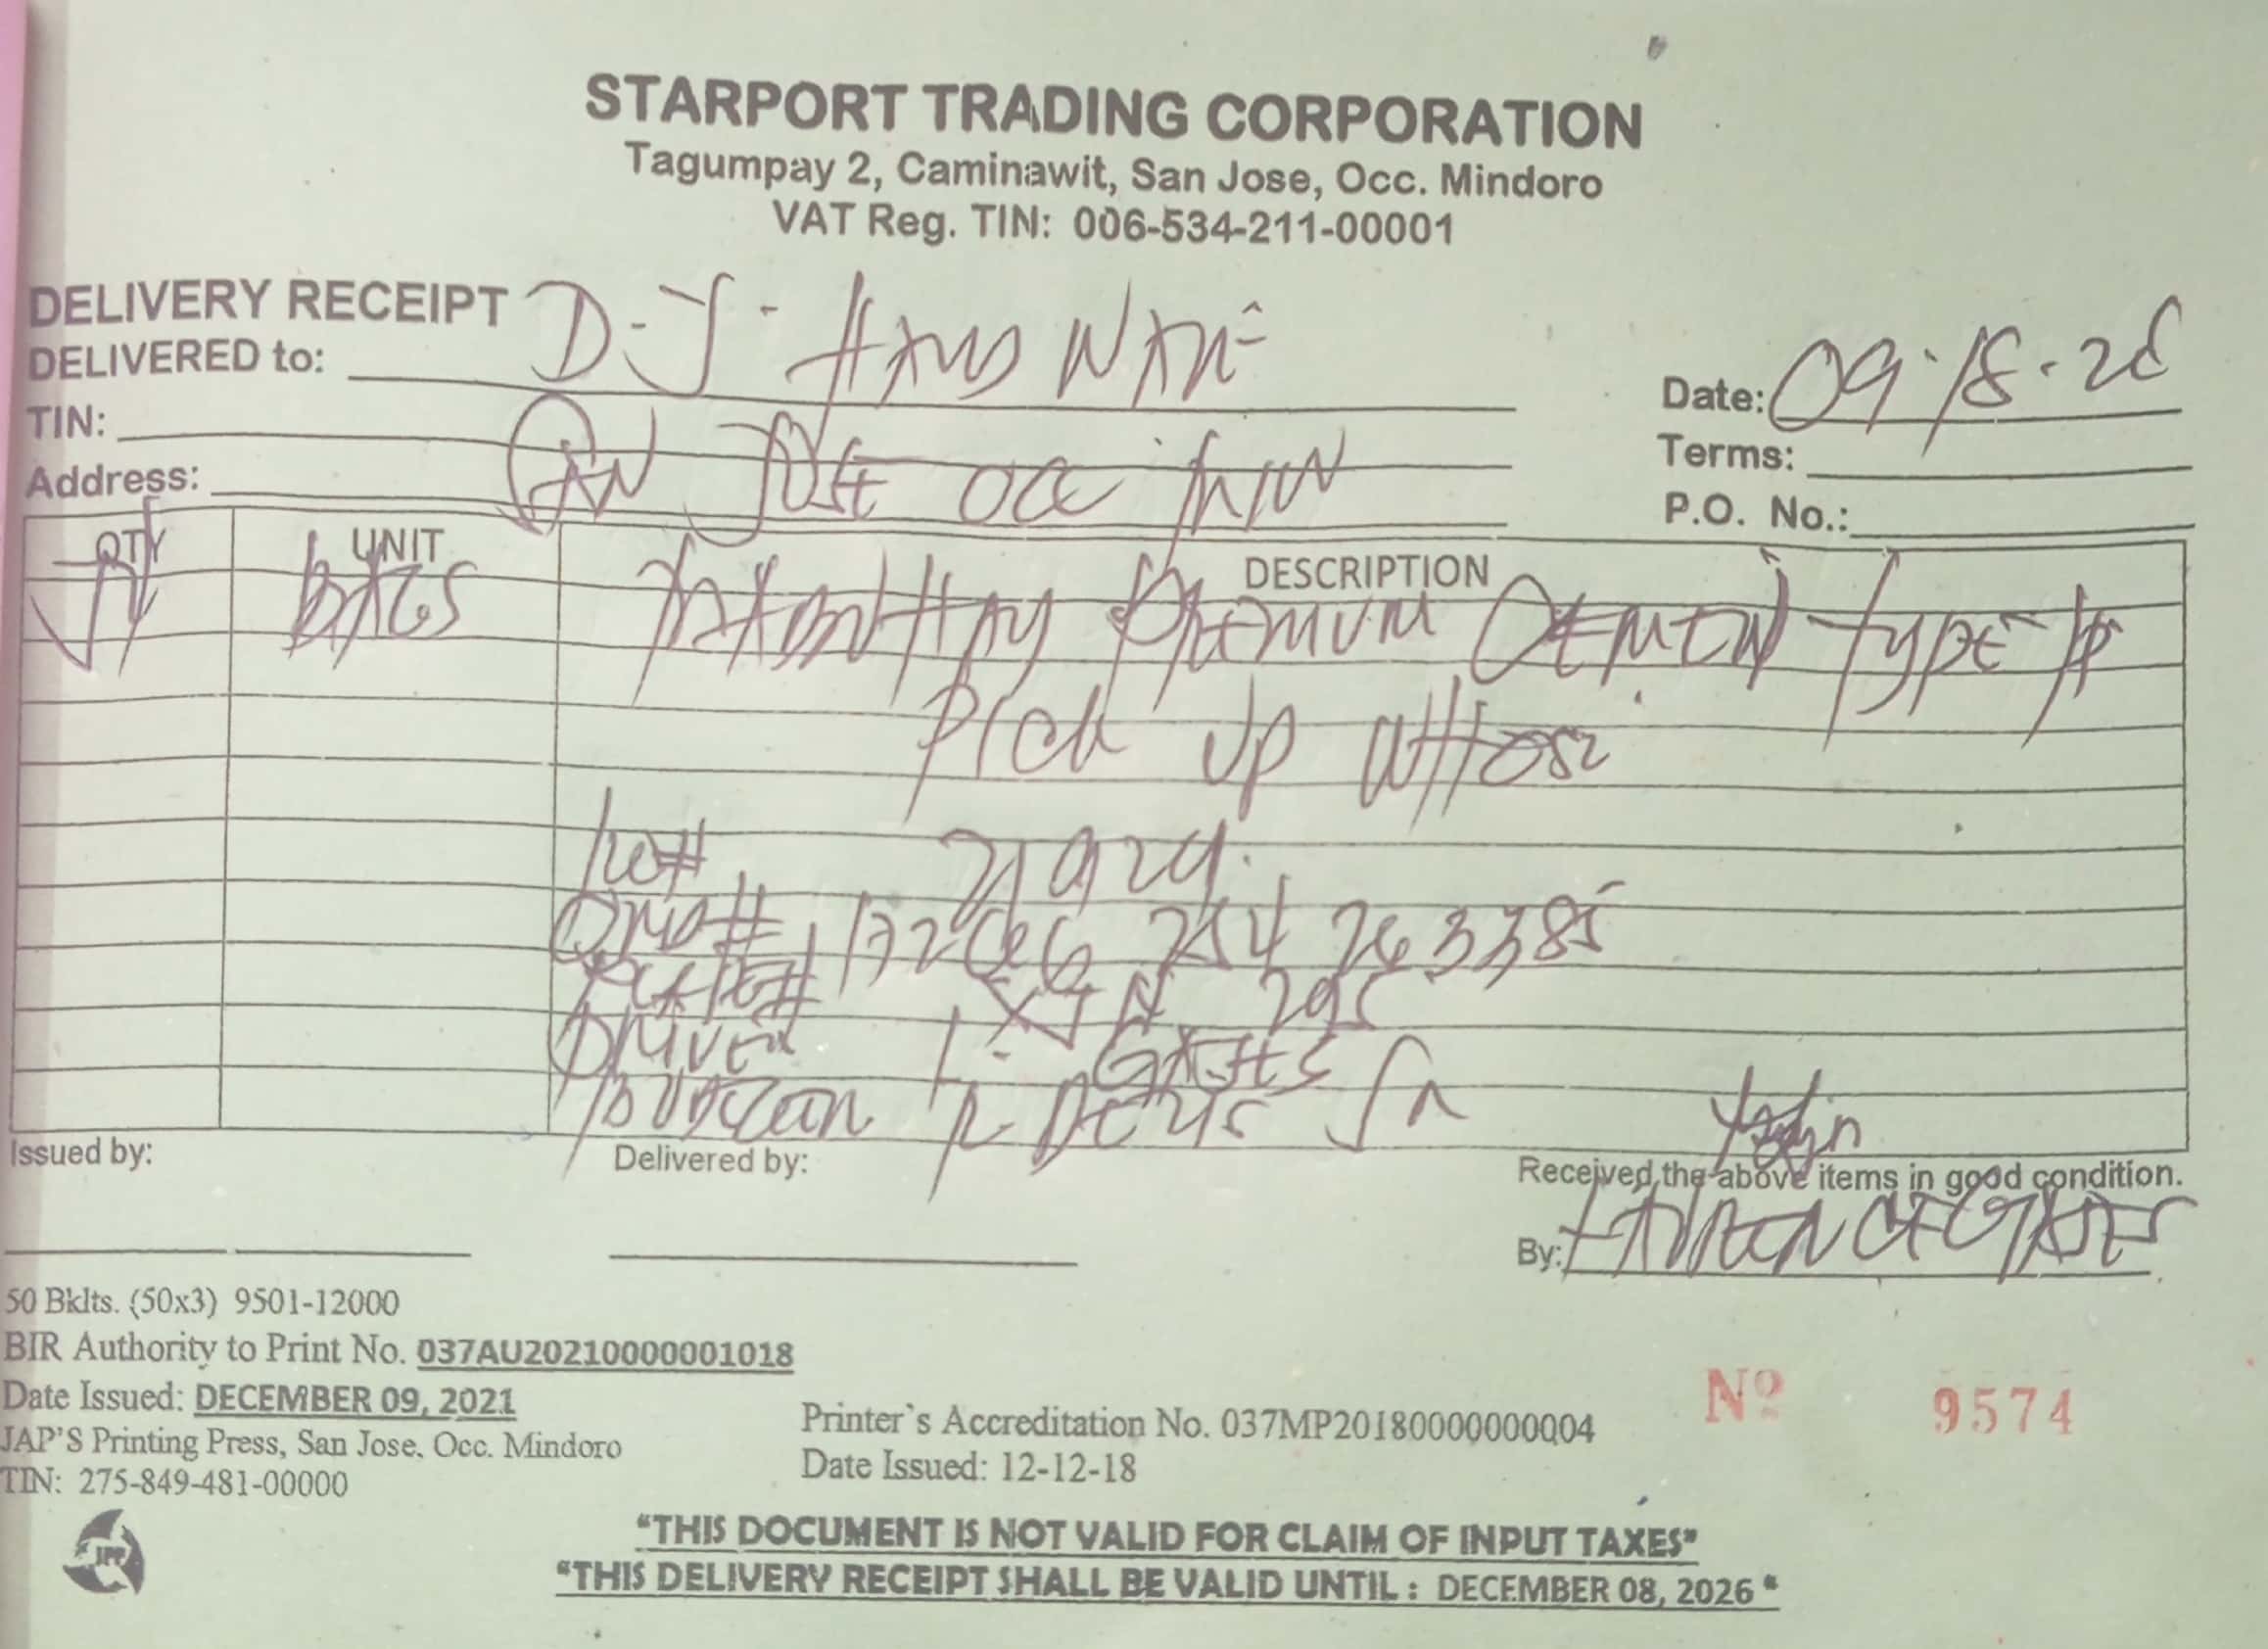 STARPORT TRADING CORPORATION
Tagumpay 2, Caminawit, San Jose, Occ. Mindoro
VAT Reg. TIN: 006-534-211-00001
DELIVERY RECEIPT
DELIVERED to: D.J. HARDWARE
Date: 09-18-25
TIN:
Terms:
Address: SAN JOSE OCC MIN
P.O. No.:
QTY UNIT DESCRIPTION
BAGS PREMIUM CEMENT TYPE 1P
PICK UP
71924
PLATE# 295
DRIVER
Issued by:
Delivered by:
Received the above items in good condition.
By:
50 Bklts. (50x3) 9501-12000
BIR Authority to Print No. 037AU20210000001018
Date Issued: DECEMBER 09, 2021
JAP'S Printing Press, San Jose, Occ. Mindoro
TIN: 275-849-481-00000
Printer's Accreditation No. 037MP20180000000004
Date Issued: 12-12-18
Nº 9574
JPP
"THIS DOCUMENT IS NOT VALID FOR CLAIM OF INPUT TAXES"
"THIS DELIVERY RECEIPT SHALL BE VALID UNTIL : DECEMBER 08, 2026 "